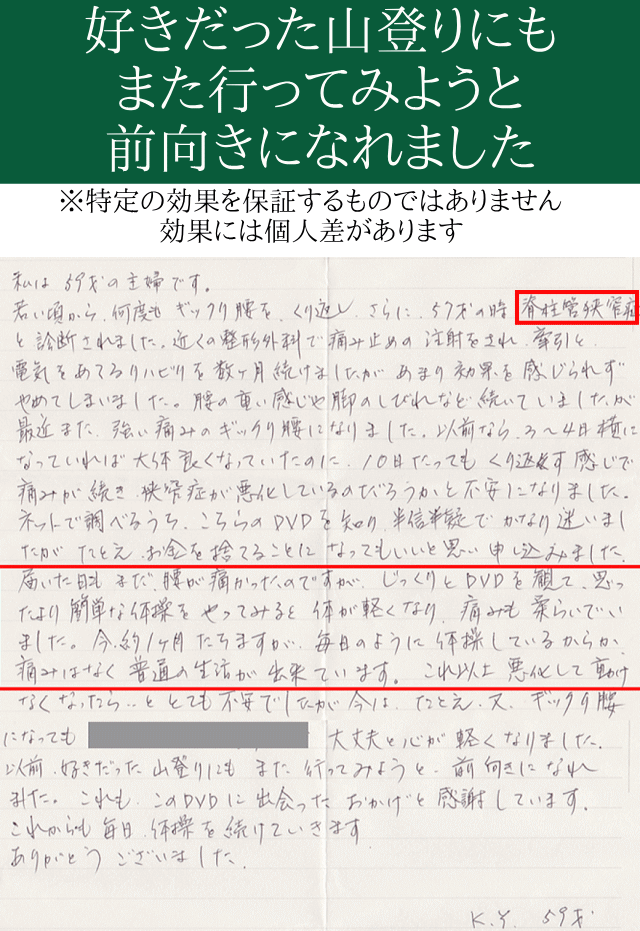 好きだった山登りにも
また行ってみようと
前向きになれました
※特定の効果を保証するものではありません
効果には個人差があります
私は59才の主婦です。
若い頃から、何度もギックリ腰を、くり返し、さらに、57才の時、脊柱管狭窄症
と診断されました。近くの整形外科で痛み止めの注射をされ、牽引と、
電気をあてるリハビリを数ヶ月続けましたが、あまり効果を感じられず
やめてしまいました。腰の重い感じや脚のしびれなど続いていましたが
最近また、強い痛みのギックリ腰になりました。以前なら、3〜4日横に
なっていれば大体良くなっていたのに、10日たってもくり返す感じで
痛みが続き、狭窄症が悪化しているのだろうかと不安になりました。
ネットで調べるうち、こちらのDVDを知り、半信半疑でかなり迷いまし
たがたとえ、お金を捨てることになってもいいと思い申し込みました。
届いた日もまだ、腰が痛かったのですが、じっくりとDVDを観て、思っ
たより簡単な体操をやってみると体が軽くなり、痛みも柔らいでい
ました。今、約1ヶ月たちますが、毎日のように体操しているからか、
痛みはなく普通の生活が出来ています。これ以上悪化して動け
なくなったら…ととても不安でしたが今は、たとえ、又、ギックリ腰
になっても 大丈夫と心が軽くなりました。
以前、好きだった山登りにもまた行ってみようと、前向きになれ
ました。これも、このDVDに出会ったおかげと感謝しています。
これからも毎日、体操を続けていきます
ありがとうございました。
K.Y. 59才